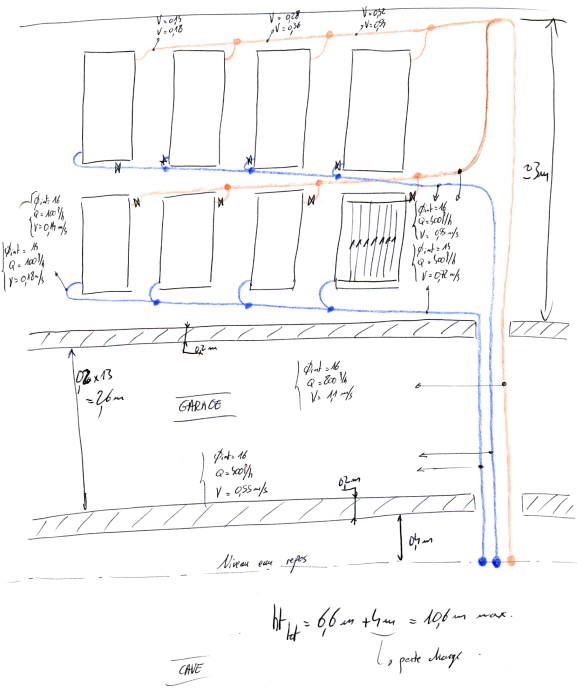 V=0,15
V=0,18
V=0,28
V=0,36
V=0,42
V=0,54
≃3m
Øint=16
Q=100 l/h
V=0,14 m/s
Øint=16
Q=400 l/h
V=0,55 m/s
Øint=15
Q=100 l/h
V=0,18 m/s
Øint=15
Q=400 l/h
V=0,72 m/s
0,2 m
0,2 x 13
= 2,6 m
Øint=16
Q=800 l/h
V=1,1 m/s
GARAGE
Øint=16
Q=400 l/h
V=0,55 m/s
0,2 m
0,4 m
Niveau eau repos
ht tot = 6,6 m + 4m = 10,6 m max.
↳ perte charge.
CAVE